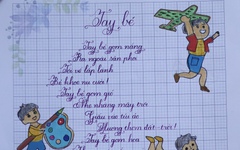 Tay bé
Tay bé gom nắng
Ra ngoài sân phơi
Tới về lấp lánh
Bé khoe nụ cười!
Tay bé gom gió
Nhẹ nhàng mây trôi
Giấu vào tóc
Hương thơm đất trời!
Tay bé gom hoa